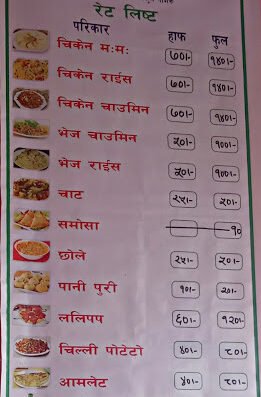 रेट लिष्ट
परिकार हाफ फुल
चिकेन म:म: ७०।- १४०।-
चिकेन राईस ७०।- १४०।-
चिकेन चाउमिन ७०।- १४०।-
भेज चाउमिन ५०।- १००।-
भेज राईस ५०।- १००।-
चाट २५।- ५०।-
समोसा १०
छोले २५।- ५०।-
पानी पुरी १०।- २०।-
ललिपप ६०।- १२०।-
चिल्ली पोटेटो ४०।- ८०।-
आमलेट ४०।- ८०।-